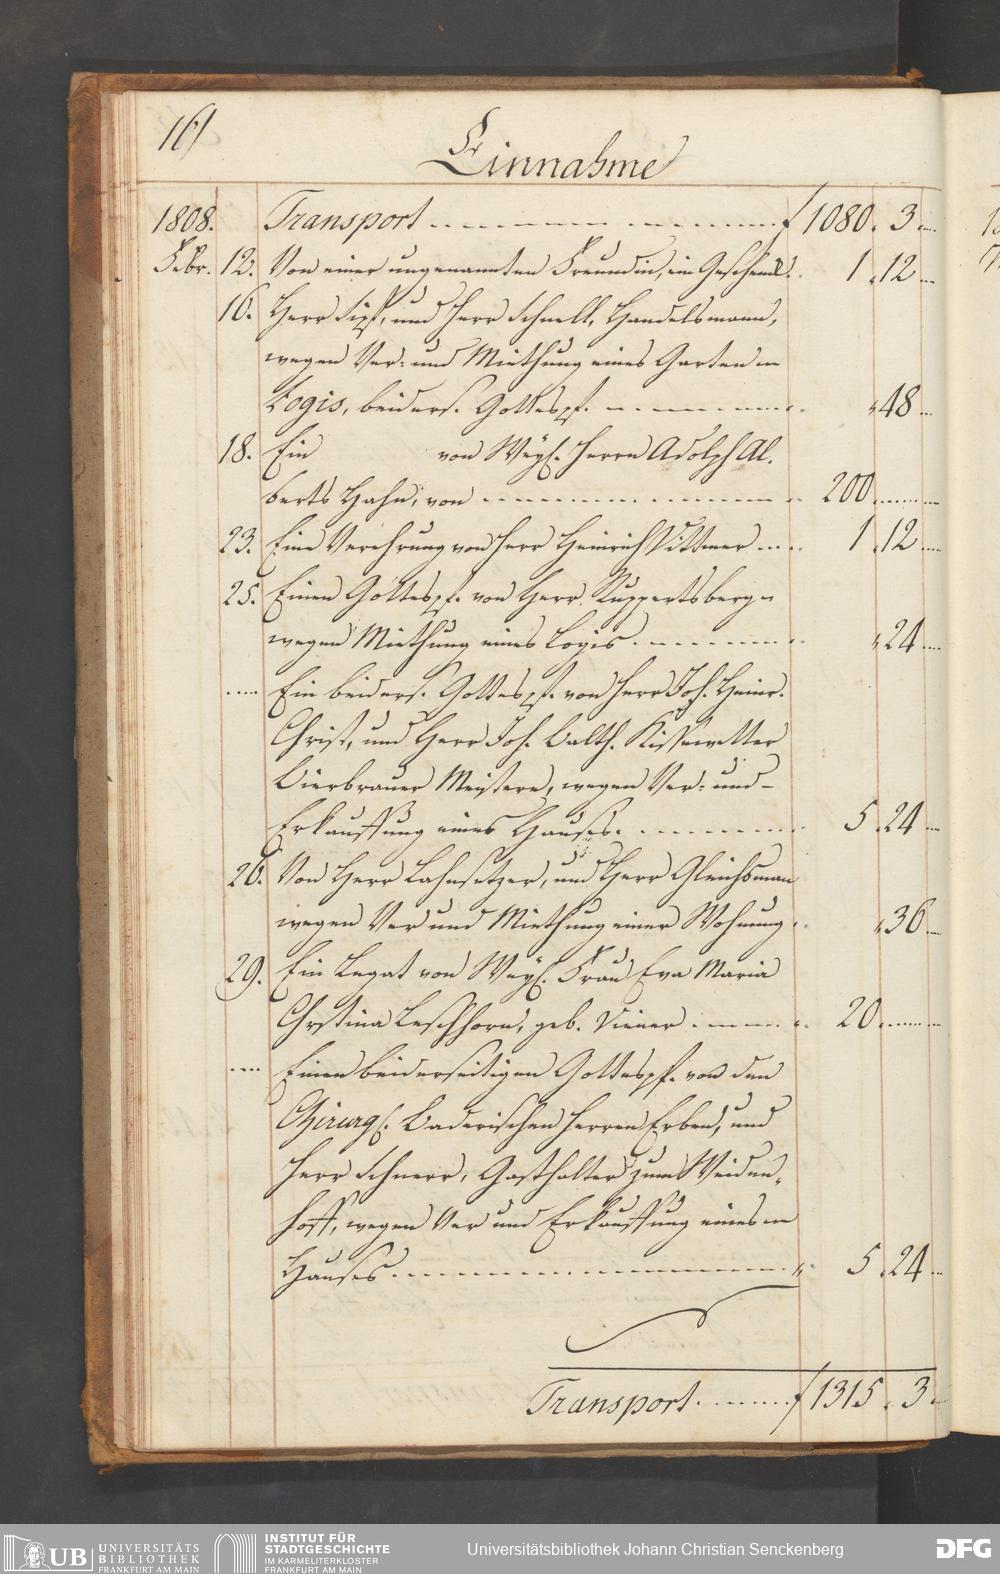 16/
Einnahme
1808. Transport f 1080. 3.
Febr. 12. Von einer ungenannten Freundin, ein Geschenk. 1. 12
16. Herr und Herr Schnell, Handelsmann,
wegen Ver- und Miethung eines Garten
Logis, beiders. Gottespf. " 48
18. Ein von Weyl. Herrn Adolph Al-
berts Hahn, von 200
23. Eine Verehrung von Herr Heinrich Dittmer 1. 12
25. Einen Gottespf. von Herr Ruppertsberg
wegen Miethung eines Logis " 24
Ein beiders. Gottespf. von Herr Joh. Heinr.
Christ, und Herr Joh. Balth. Kissewetter
Bierbrauer Meistere, wegen Ver- und
Erkauffung eines Hauses. 5. 24
26. Von Herr Lahnsetzer, und Herr Gleichsman
wegen Ver und Miethung einer Wohnung " 36
29. Ein Legat von Weyl. Frau Eva Maria
Chrstina Leschhorn, geb. Diener 20
Einen beiderseitigen Gottespf. von den
Chirurg. Baderischen Herren Erben, und
Herr Schnerr, Gasthalter zum Weiden-
hoff, wegen Ver und Erkauffung eines
Hauses 5. 24
Transport f 1315. 3
UB UNIVERSITÄTS
BIBLIOTHEK
FRANKFURT AM MAIN
INSTITUT FÜR
STADTGESCHICHTE
IM KARMELITERKLOSTER
FRANKFURT AM MAIN
Universitätsbibliothek Johann Christian Senckenberg
DFG